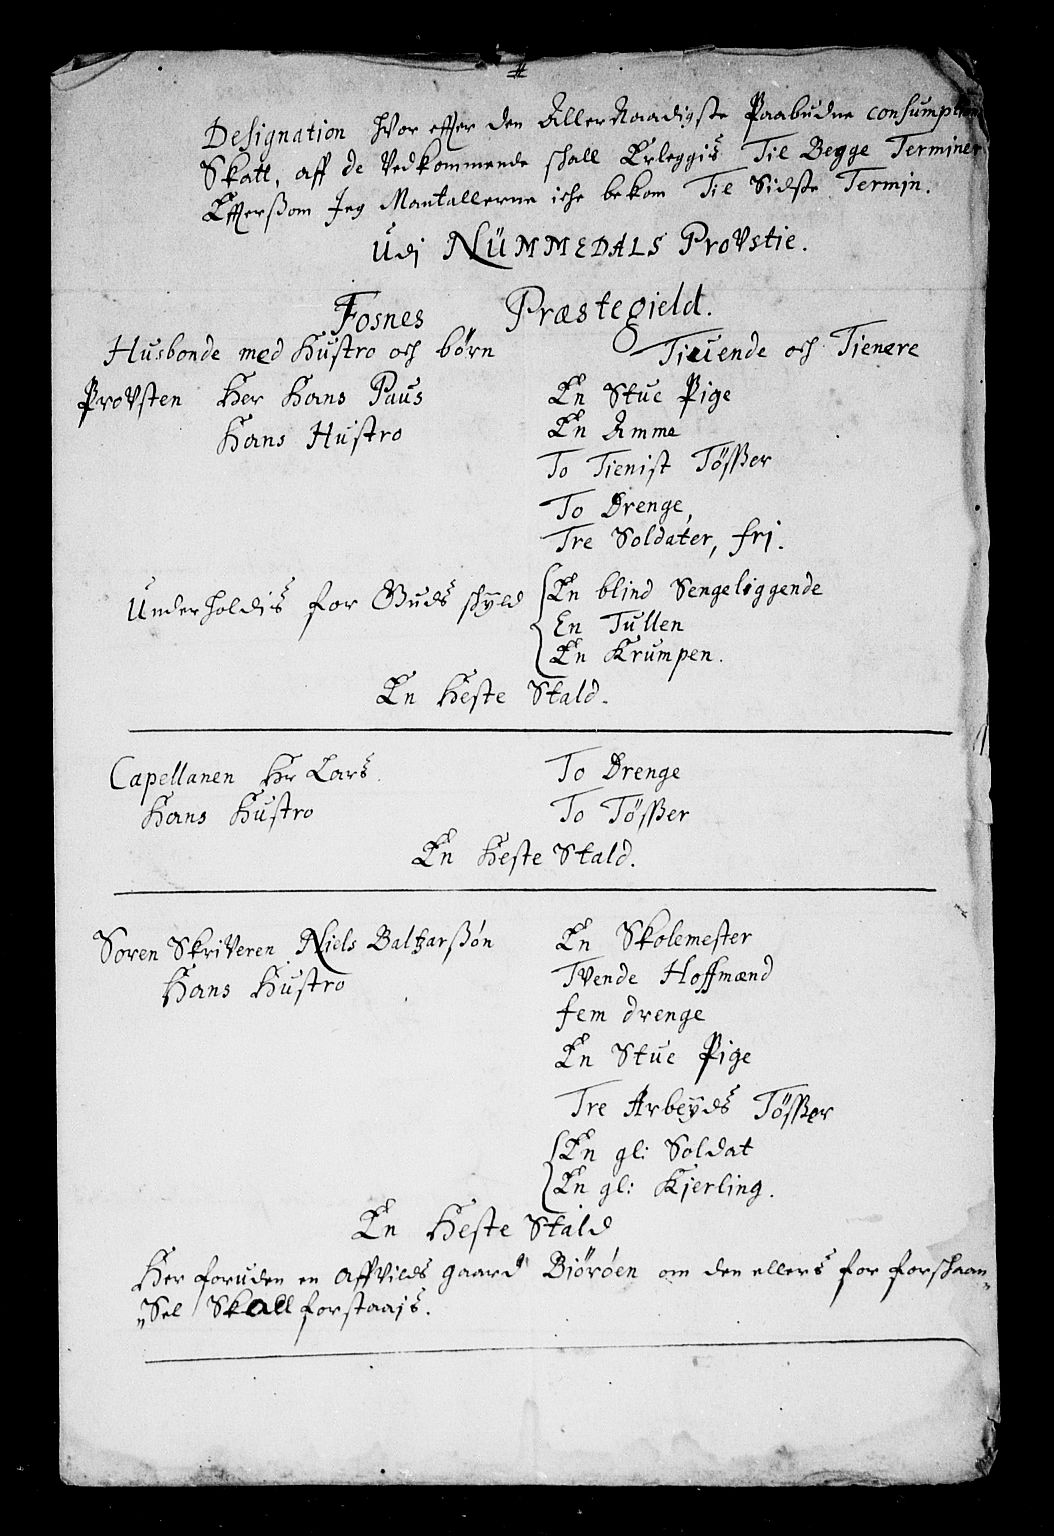 Designation hvor effter den AllerNaadigste Paabudne consumption
Skatt, aff de Vedkommende skall Erleggis Til Begge Terminer
Effterßom Jeg Mantallerne iche bekom Til Sidste Termin.
Udi NÜMMEDALS ProVstie.
Fosnes Præstegield.
Husbonde med Hustro och børn Tieuende och Tienere
ProVsten Her Hans Paus En Stue Pige
Hans Hustro En Amme
To Tienist Tösßer
To Drenge,
Tre Soldater, fri.
Underholdis for Guds skyld En blind Sengeliggende
En Tullen
En Krumpen.
En Heste Stald.
Capellanen Hr Lars. To Drenge
Hans Hustro To Tösßer
En Heste Stald.
Soren SkriVeren Niels Baltzarßøn En Skolemester
Hans Hustro Tvende Hoffmænd
fem drenge
En Stue Pige
Tre Arbeyds Tösßer
En gl: Soldat
En gl: Kjerling.
En Heste Stald
Her foruden en Affvilds gaard Biöröen om den ellers for forskaan„
„Sel Skall forstaajs.